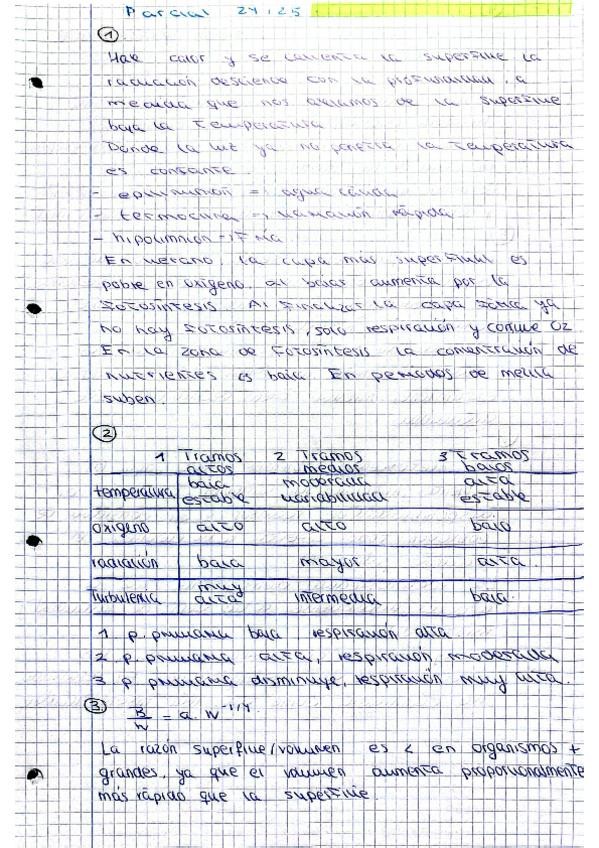 Parcial 24/25
1
Hace calor y se calienta la superficie la
radiación desciende con la profundidad, a
medida que nos alejamos de la superficie
baja la temperatura
Donde la luz ya no penetra la temperatura
es constante.
- epilimnion => agua cálida
- termoclina -> variación rápida
- hipolimnion -> fría
En verano la capa más superficial es
pobre en oxígeno, al bajar aumenta por la
fotosíntesis. Al finalizar la capa fótica ya
no hay fotosíntesis, solo respiración y consume O2
En la zona de fotosíntesis la concentración de
nutrientes es baja. En periodos de mezcla
suben.
2
1 Tramos altos 2 Tramos medios 3 Tramos bajos
temperatura baja estable moderada variabilidad alta estable
oxígeno alto alto bajo
radiación baja mayor alta.
Turbulencia muy alta intermedia baja.
1. p. primaria baja, respiración alta
2. p. primaria alta, respiración moderada
3. p. primaria disminuye, respiración muy alta.
3. R/W = a. W^-1/4.
La razón superficie/volumen es < en organismos +
grandes, ya que el volumen aumenta proporcionalmente
más rápido que la superficie.